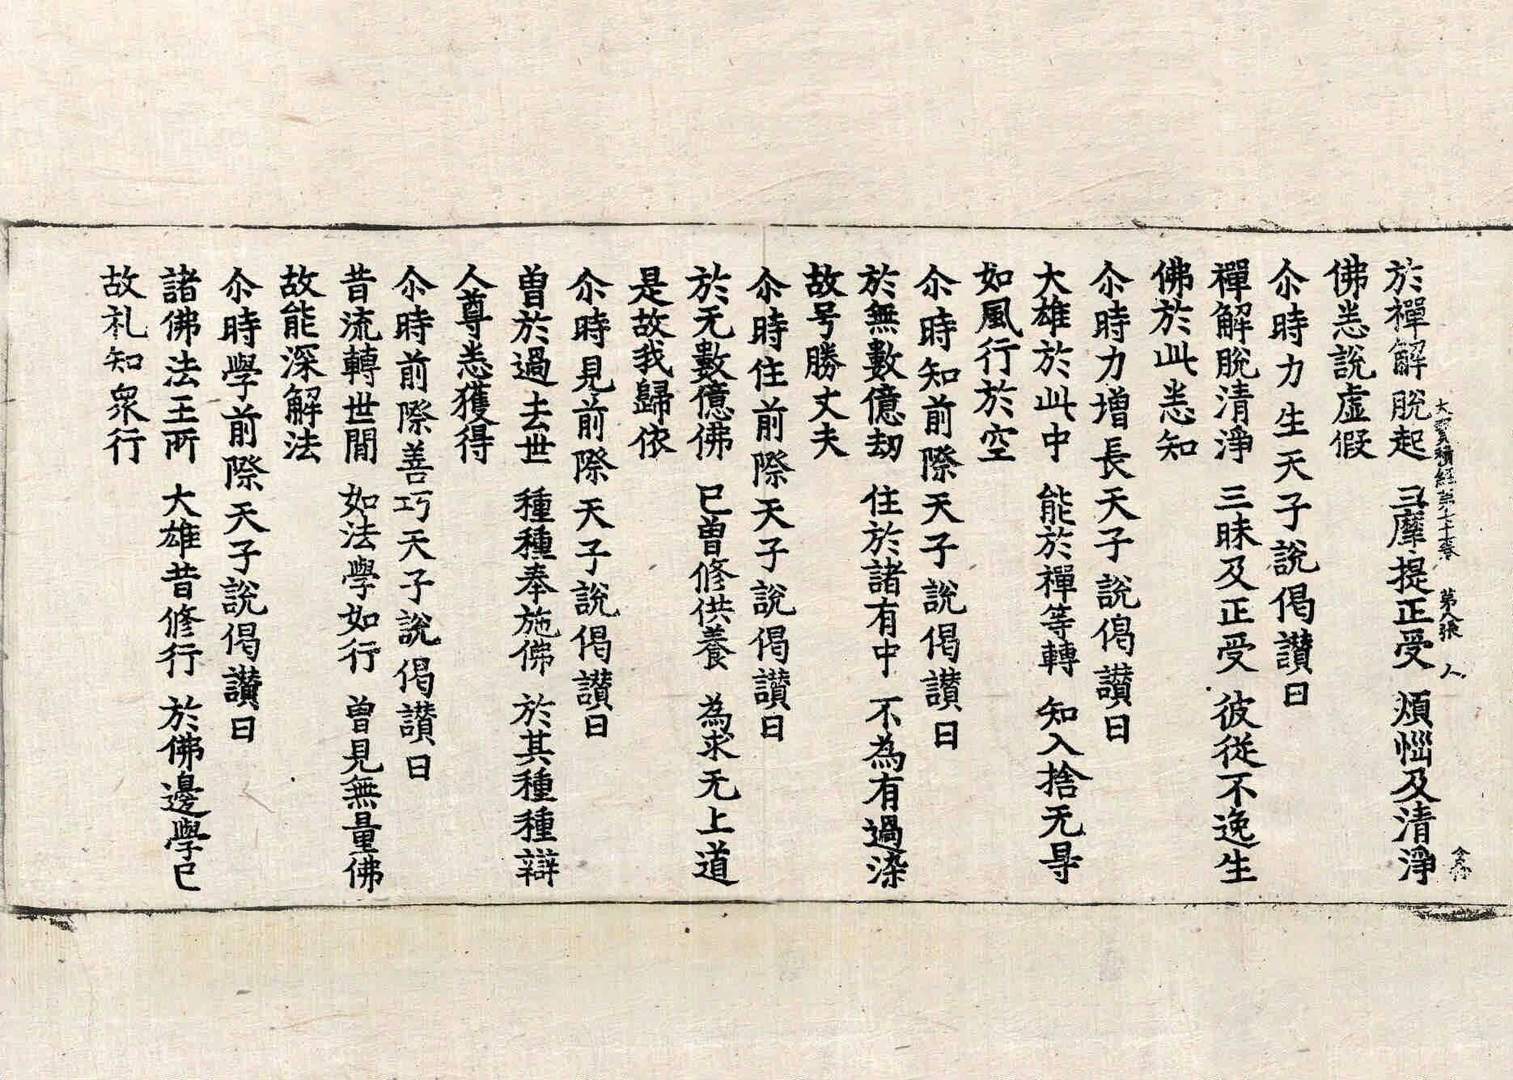 大寳積経第七十卷　第八張　人
於禪解脫起　三摩提正受　煩惱及清淨
佛悉說虛假
尒時力生天子說偈讃曰
禪解脫清淨　三昧及正受　彼從不逸生
佛於此悉知
尒時力增長天子說偈讃曰
大雄於此中　能於禪等轉　知入捨无㝵
如風行於空
尒時知前際天子說偈讃曰
於無數億劫　住於諸有中　不為有過染
故号勝丈夫
尒時住前際天子說偈讃曰
於无數億佛　已曽修供養　為求无上道
是故我歸依
尒時見前際天子說偈讃曰
曽於過去世　種種奉施佛　於其種種辯
人尊悉獲得
尒時前際善巧天子說偈讃曰
昔流轉世間　如法學如行　曽見無量佛
故能深解法
尒時學前際天子說偈讃曰
諸佛法王所　大雄昔修行　於佛邊學已
故礼知衆行